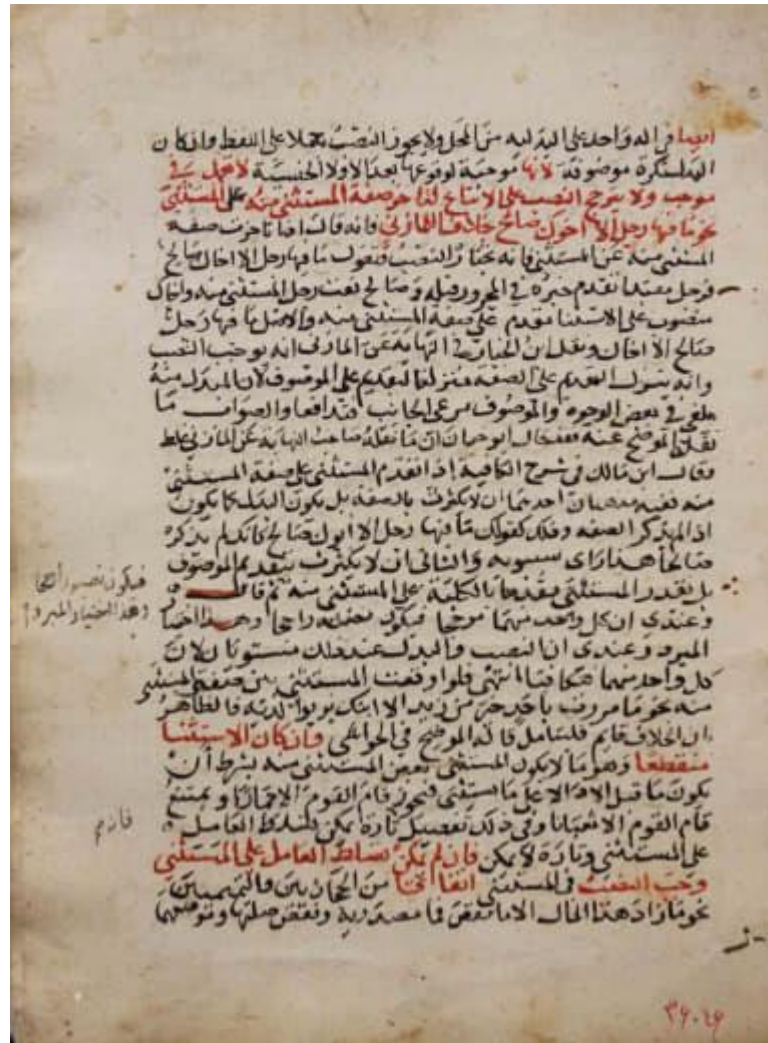 ايضا في اله واحد على البدلية من المحل ولا يجوز النصب حملا على اللفظ وان كان
البدل نكرة موصوفة لانها موجبة لوقوعها بعد الا ولا الجنسية لا تعمل في
موجب ولا يترجح النصب على الاتباع لتاخر صفة المستثنى منه على المستثنى
نحو ما فيها رجل الا اخوك صالح خلافا للمازني فانه قال اذا تاخرت صفة
المستثنى منه عن المستثنى فانه يختار النصب فتقول ما فيها رجل الا اخاك صالح
فرجل مبتدا تقدم خبره في المجرور قبله وصالح نعت رجل المستثنى منه واخاك
منصوب على الاستثنا مقدم على صفة المستثنى منه والاصل ما فيها رجل
صالح الا اخاك ونقل ابن الخباز في النهاية عن المازني انه يوجب النصب
وانه يقول التقديم على الصفة منزلة التقديم على الموصوف لان المبدل منه
ملغى في بعض الوجوه والموصوف مرعى الجانب فتدافعا والصواب ما
نقله الموضح عنه فقد قال ابو حيان ان ما نقله صاحب النهاية عن المازني غلط
وقال ابن مالك في شرح الكافية اذا تقدم المستثنى على صفة المستثنى
منه ففيه مذهبان احدهما ان لا يكترث بالصفة بل يكون البدل كما يكون
اذا لم تذكر الصفة وذلك كقولك ما فيها رجل الا ابوك صالح كانك لم تذكر
صالحا هذا راى سيبويه والثاني ان لا يكترث بتقديم الموصوف
بل يقدر المستثنى مقدما بالكلية على المستثنى منه ثم قال
فيكون نصبه راجحا
وهذا اختيار المبرد
وعندي ان كل واحد منهما مرجحا فيكون نصبه راجحا وهذا اختيار
المبرد وعندي ان النصب والبدل عند ذلك مستويان لان
كل واحد منهما مكافئا انتهى فلو وقعت المستثنى بين صفتي المستثنى
منه نحو ما مررت باحد خير من زيد الا ابنك بر بوالديه فالظاهر
ان الخلاف قايم فليتامل قاله الموضح في الحواشي وان كان الاستثنا
منقطعا وهو ما لا يكون المستثنى بعض المستثنى منه بشرط ان
يكون ما قبل الا دالا على ما يستثنى فيجوز قام القوم الا حمارا ويمتنع
قام القوم الا ثعبانا وفي ذلك تفصيل تارة يمكن تسلط العامل
على المستثنى وتارة لا يمكن فان لم يمكن تسلط العامل على المستثنى
وجب النصب في المستثنى اتفاقا من الحجازيين والتميميين
نحو ما زاد هذا المال الا ما نقص فما مصدرية ونقص صلتها وموضعهما